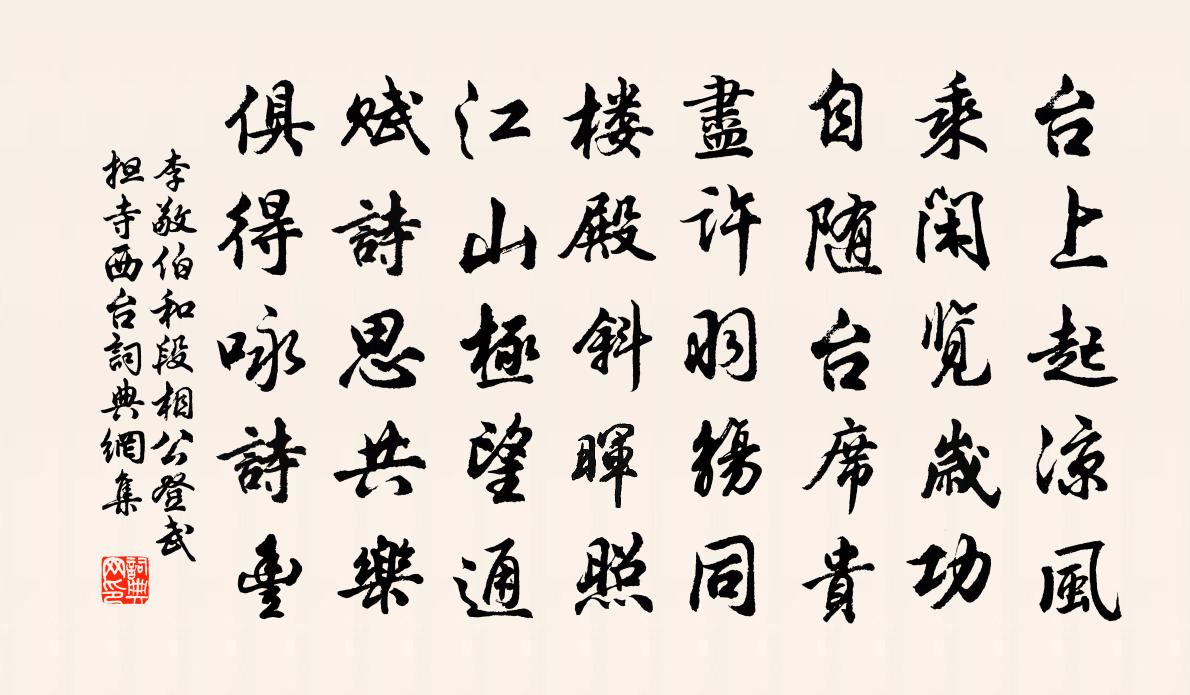 台上起涼風
乘閑覧歲功
自随台席貴
盡許羽觴同
楼殿斜暉照
江山極望通
賦詩思共樂
俱得咏詩豊
李敬伯和段相公登武
担寺西台詞典網集
詞典网印